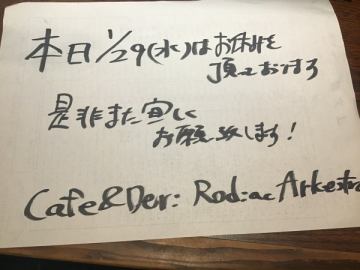 本日1/29(水)はお休みを
頂っております
是非また宜しく
お願い致します!
Cafe&Deri Rodiac Arkestra